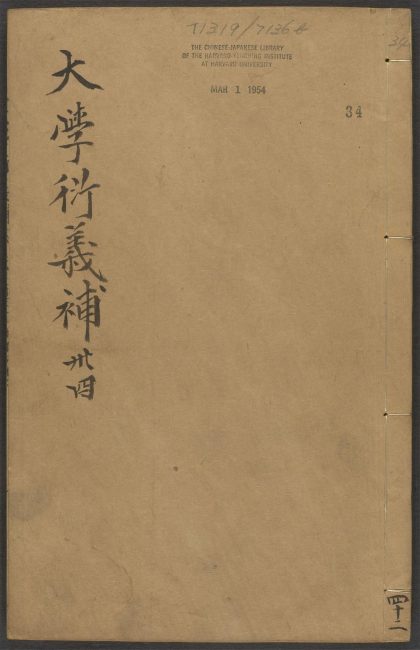 T1319/7136b
THE CHINESE-JAPANESE LIBRARY
OF THE HARVARD-YENCHING INSTITUTE
AT HARVARD UNIVERSITY
MAR 1 1954
34
34
大學衍義補
卅四
四十二